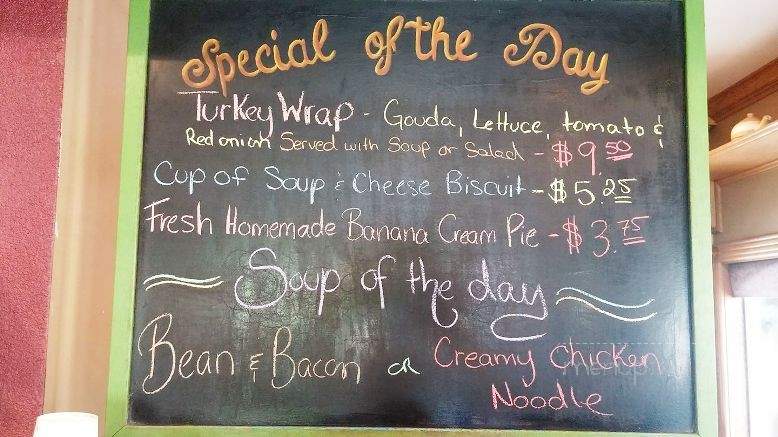 Special of the Day
Turkey Wrap - Gouda, Lettuce, tomato &
Red onion Served with Soup or Salad - $9.50
Cup of Soup & Cheese Biscuit - $5.25
Fresh Homemade Banana Cream Pie - $3.75
Soup of the day
Bean & Bacon or Creamy Chicken
Noodle